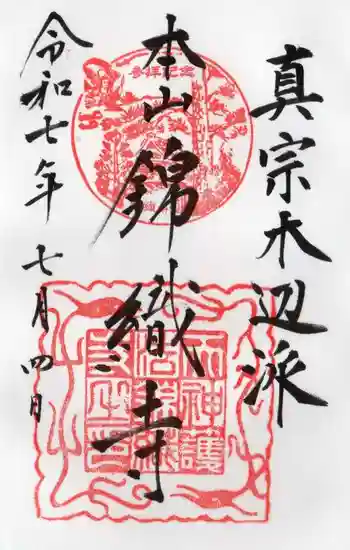 真宗木辺派
本山錦織寺
令和七年 七月四日
参拝記念